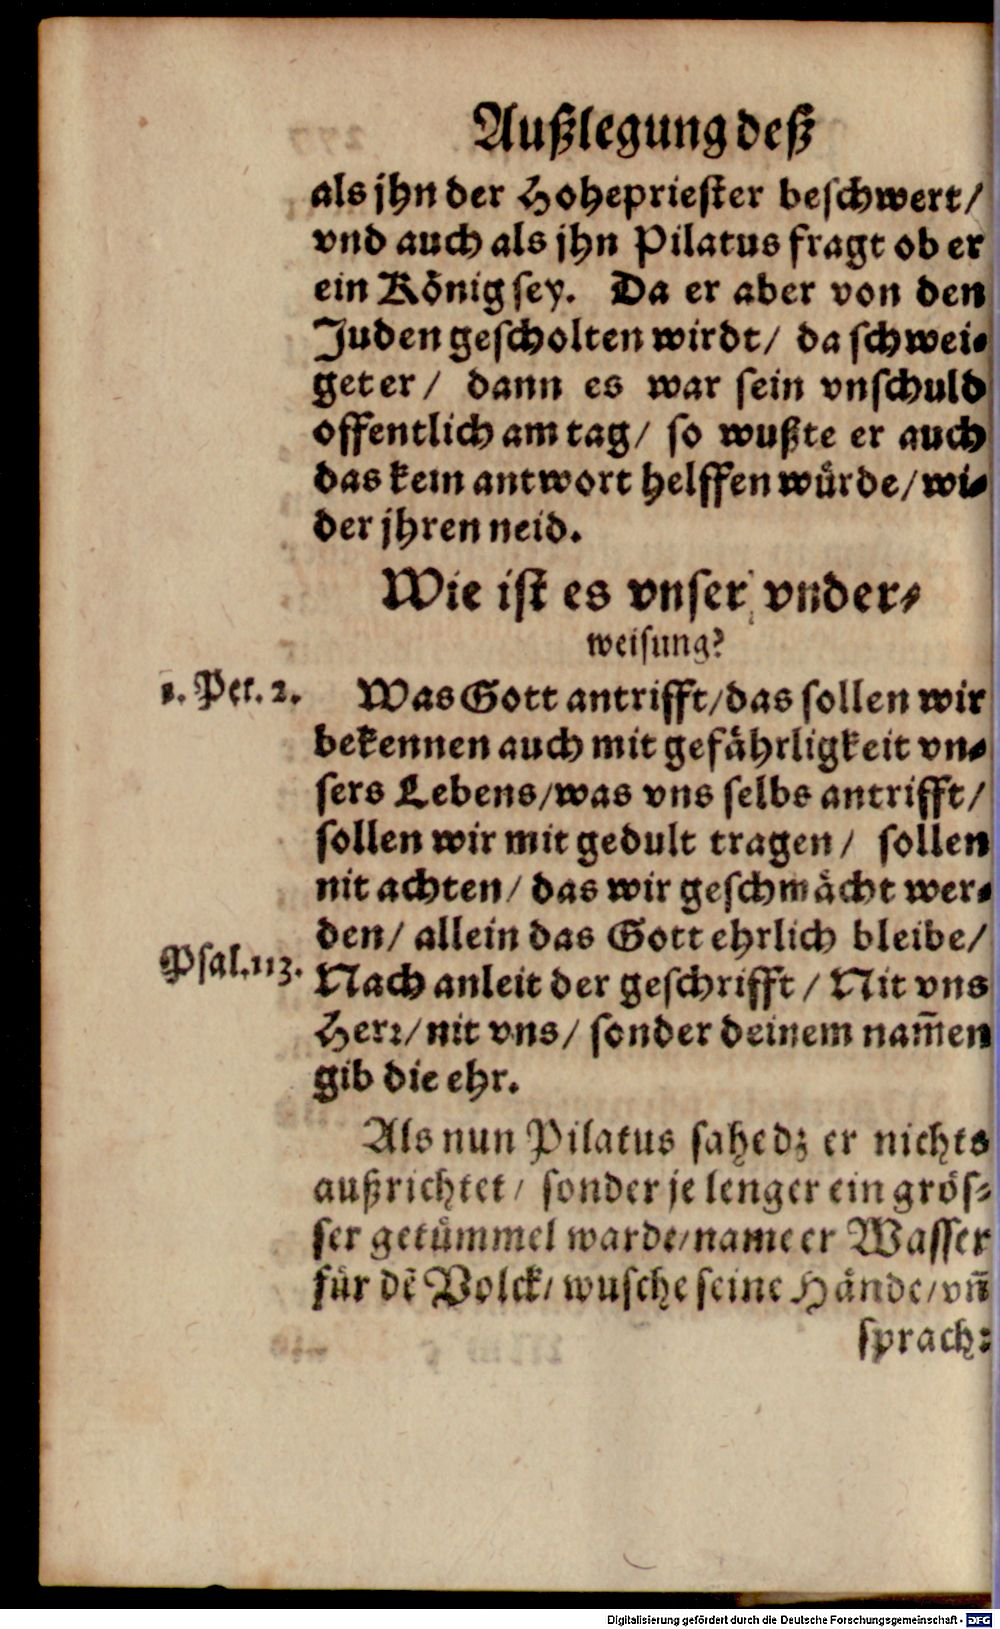 Außlegung deß
als jhn der Hohepriester beschwert/
vnd auch als jhn Pilatus fragt ob er
ein König sey. Da er aber von den
Juden gescholten wirdt/ da schwei-
get er/ dann es war sein vnschuld
offentlich am tag/ so wußte er auch
das kein antwort helffen wuͤrde/ wi-
der jhren neid.
Wie ist es vnser vnder-
weisung?
1. Pet. 2.
Was Gott antrifft/ das sollen wir
bekennen auch mit gefaͤhrligkeit vn-
sers Lebens/ was vns selbs antrifft/
sollen wir mit gedult tragen/ sollen
nit achten/ das wir geschmaͤcht wer-
den/ allein das Gott ehrlich bleibe/
Psal. 113.
Nach anleit der geschrifft/ Nit vns
Herr/ nit vns/ sonder deinem nam̄en
gib die ehr.
Als nun Pilatus sahe dz er nichts
außrichtet/ sonder je lenger ein groͤs-
ser getuͤmmel warde/ name er Wasser
fuͤr dē Volck/ wusche seine Haͤnde/ vn̄
sprach:
Digitalisierung gefördert durch die Deutsche Forschungsgemeinschaft - DFG